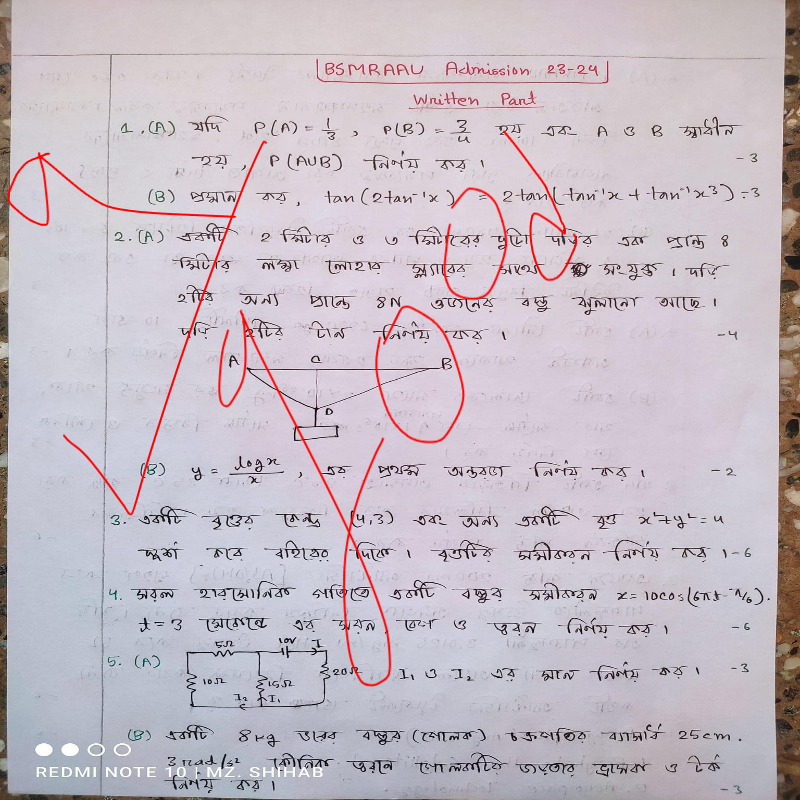 BSMRAAU Admission 23-24
Written Part
1. (A) যদি P(A) = 1/3 , P(B) = 3/4 হয় এবং A ও B স্বাধীন
হয়, P(AUB) নির্ণয় কর। -3
(B) প্রমাণ কর, tan(2tan⁻¹x) = 2tan(tan⁻¹x + tan⁻¹x³) -3
2. (A) একটি ২ মিটার ও ৩ মিটারের দুটো দড়ির এক প্রান্ত ৪
মিটার লম্বা লোহার স্ল্যাবের সাথে সংযুক্ত। দড়ি
২টির অন্য প্রান্তে 8N ওজনের বস্তু ঝুলানো আছে।
দড়ি ২টির টান নির্ণয় কর। -4
A C B
D
(B) y = logx/x , এর প্রথম অন্তরজ নির্ণয় কর। -2
3. একটি বৃত্তের কেন্দ্র (4,3) এবং অন্য একটি বৃত্ত x²+y²=4
স্পর্শ করে বহিরের দিকে। বৃত্তটির সমীকরন নির্ণয় কর। -6
4. সরল হারমোনিক গতিতে একটি বস্তুর সমীকরন x=10cos(6πt-π/6).
t=3 সেকেন্ডে এর সরন, বেগ ও ত্বরন নির্ণয় কর। -6
5. (A) 5Ω 10V I
10Ω 15Ω 20Ω I₁ ও I₂ এর মান নির্ণয় কর। -3
I₂ I₁
(B) একটি 8kg ভরের বস্তুর (গোলক) চক্রগতির ব্যাসার্ধ 25cm.
3rad/s² কৌনিক ত্বরনে গোলকটির জড়তার ভ্রামক ও টর্ক
নির্ণয় কর। -3
REDMI NOTE 10 | MZ. SHIHAB